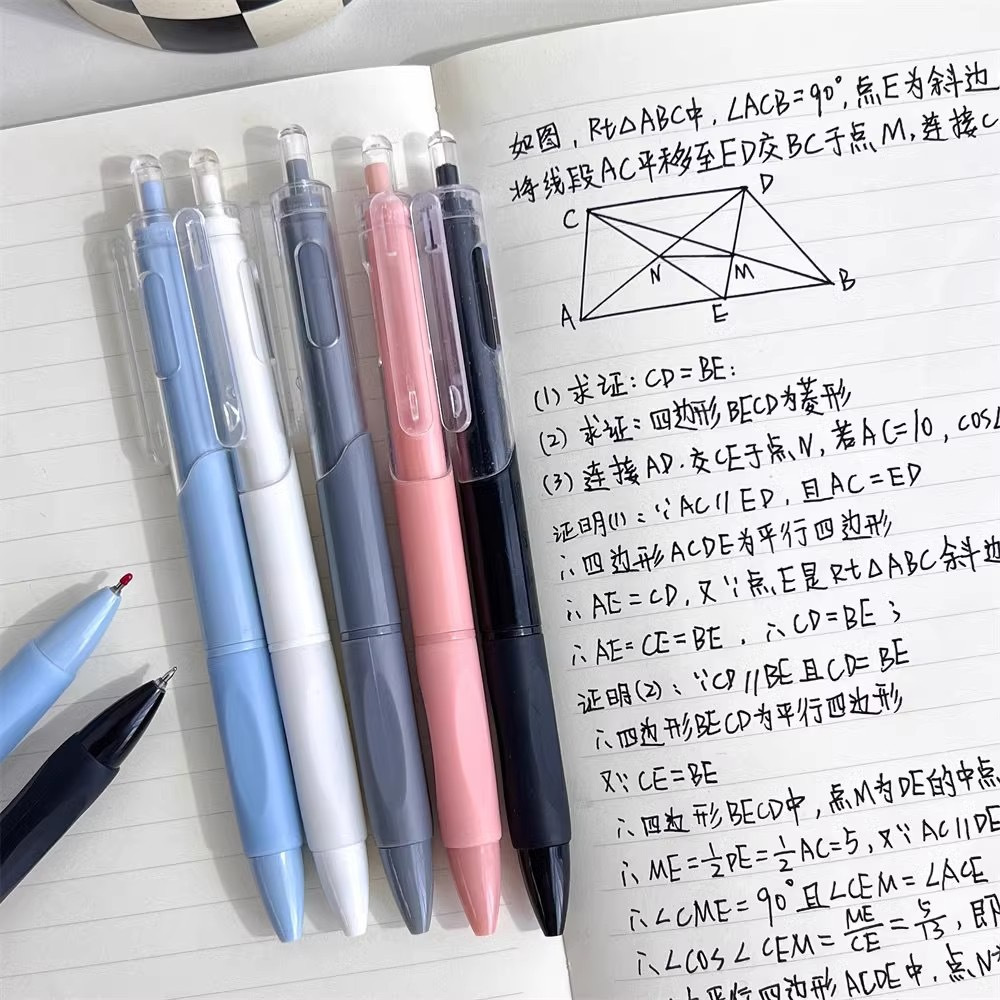 如图，Rt△ABC中，∠ACB=90°，点E为斜边
将线段AC平移至ED交BC于点M，连接C
C
D
N
M
A
E
B
(1) 求证：CD=BE：
(2) 求证：四边形BECD为菱形
(3) 连接AD.交CE于点N，若AC=10，cos∠
证明(1)：∵AC∥ED，且AC=ED
∴四边形ACDE为平行四边形
∴AE=CD，又∵点E是Rt△ABC斜边
∴AE=CE=BE．∴CD=BE；
证明(2)：∵CD∥BE且CD=BE
∴四边形BECD为平行四边形
又∵CE=BE
∴四边形BECD中，点M为DE的中点
∴ME=½DE=½AC=5，又∵AC∥DE
∴∠CME=90°且∠CEM=∠ACE
∴∠COS∠CEM=ME/CE=5/13，即
平行四边形ACDE中，点N